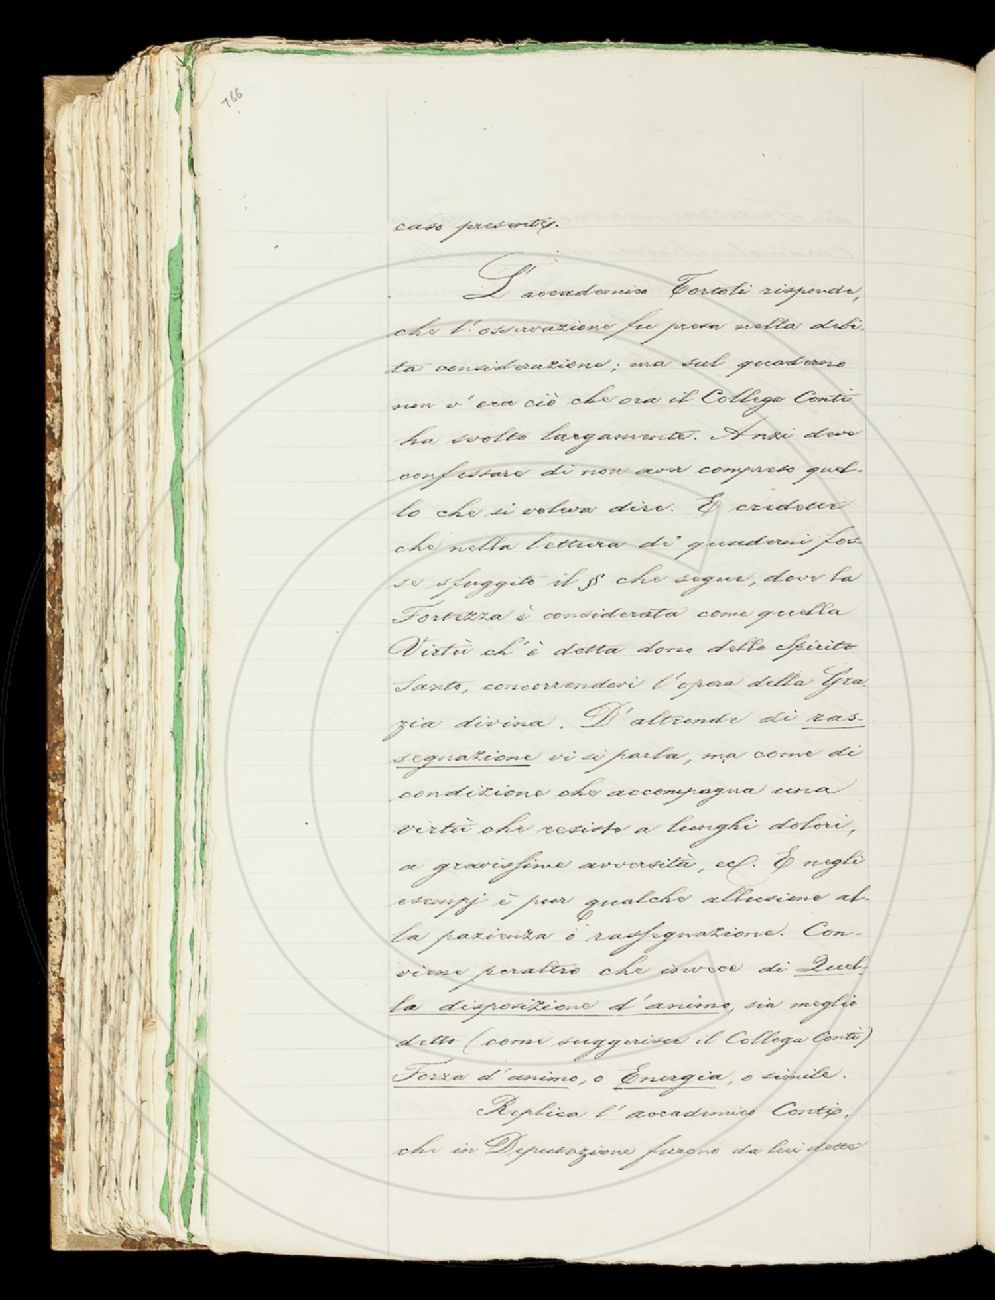 766
caso presente.
L'accademico Tortoli risponde,
che l'osservazione fu presa nella debi-
ta considerazione; ma sul quaderno
non v'era ciò che ora il Collega Conti
ha svolto largamente. Anzi deve
confessare di non aver compreso quel-
lo che si voleva dire. E credette
che nella lettura de' quaderni fos-
se sfuggito il § che segue, dove la
Fortezza è considerata come quella
Virtù ch'è detta dono dello Spirito
Santo, concorrendovi l'opera della Gra-
zia divina. D'altronde di ras-
segnazione vi si parla, ma come di
condizione che accompagna una
virtù che resiste a lunghi dolori,
a gravissime avversità, ec. E negli
esempj è pur qualche allusione al-
la pazienza o rassegnazione. Con-
viene peraltro che invece di Quel-
la disposizione d'animo, sia meglio
detto (come suggerisce il Collega Conti)
Forza d'animo, o Energia, o simile.
Replica l'accademico Conti,
che in Deputazione furono da lui dette